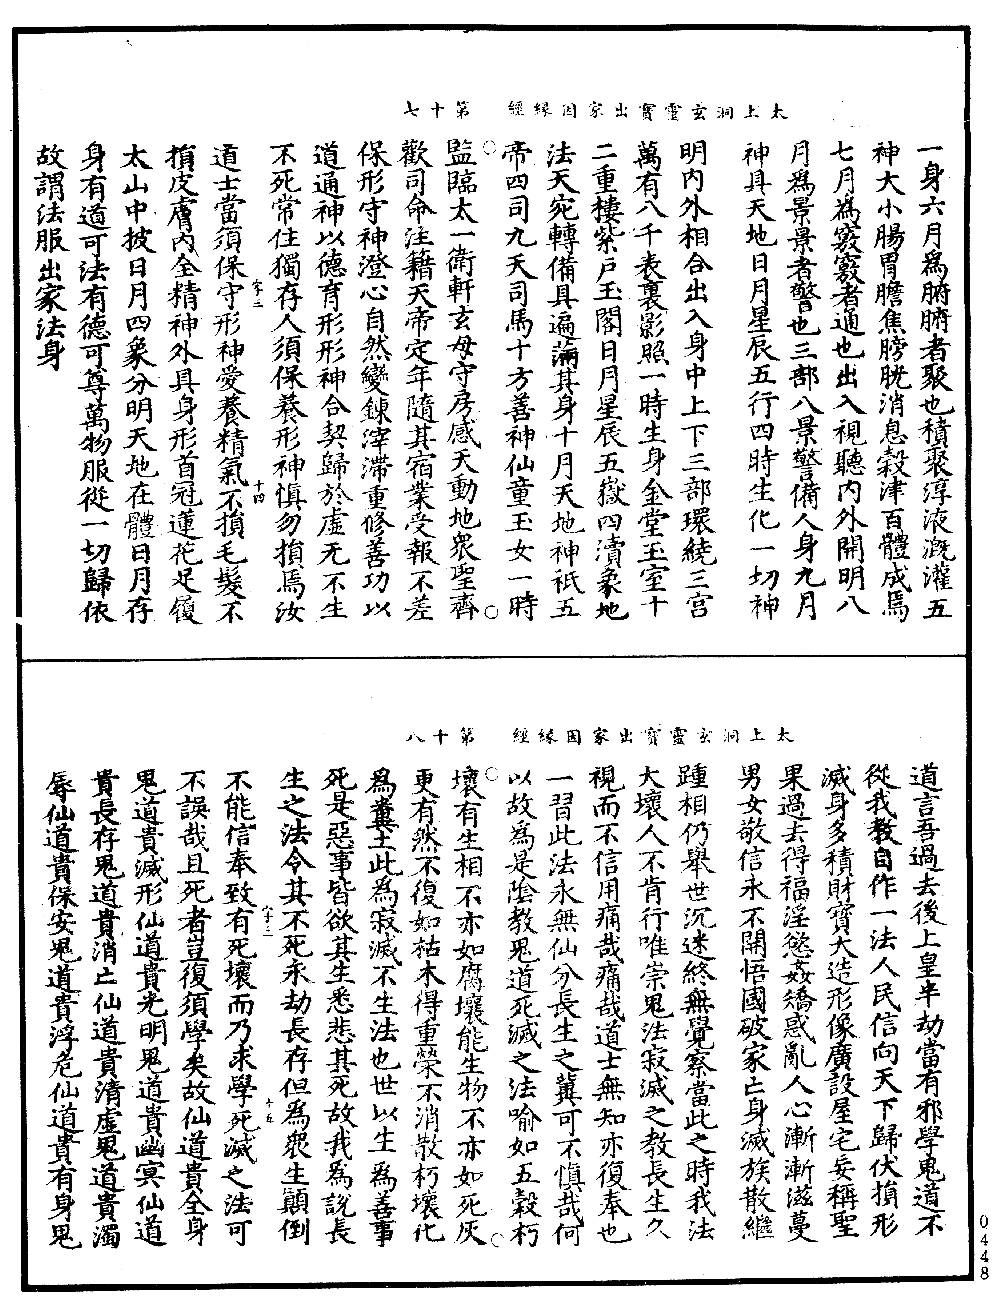 太上洞玄靈寶出家因緣經　第十七
一身六月爲腑腑者聚也積聚淳液溉灌五
神大小腸胃膽焦膀胱消息穀津百體成焉
七月爲竅竅者通也出入視聽內外開明八
月爲景景者警也三部八景警備人身九月
神具天地日月星辰五行四時生化一切神
明內外相合出入身中上下三部環繞三宮
萬有八千表裏影照一時生身金堂玉室十
二重樓紫戶玉閣日月星辰五嶽四瀆象地
法天宛轉備具遍滿其身十月天地神祇五
帝四司九天司馬十方善神仙童玉女一時
監臨太一衛軒玄母守房感天動地衆聖齊
歡司命注籍天帝定年隨其宿業受報不差
保形守神澄心自然變鍊滓滯重修善功以
道通神以德育形形神合契歸於虛无不生
不死常住獨存人須保養形神慎勿損焉汝
字二　十四
道士當須保守形神愛養精氣不損毛髮不
損皮膚內全精神外具身形首冠蓮花足履
太山中披日月四象分明天地在體日月存
身有道可法有德可尊萬物服從一切歸依
故謂法服出家法身
太上洞玄靈寶出家因緣經　第十八
道言吾過去後上皇半劫當有邪學鬼道不
從我教自作一法人民信向天下歸伏損形
滅身多積財寶大造形像廣設屋宅妄稱聖
果過去得福淫慾姦矯惑亂人心漸漸滋蔓
男女敬信永不開悟國破家亡身滅族散繼
踵相仍舉世沉迷終無覺察當此之時我法
大壞人不肯行唯崇鬼法寂滅之教長生久
視而不信用痛哉痛哉道士無知亦復奉也
一習此法永無仙分長生之冀可不慎哉何
以故爲是陰教鬼道死滅之法喻如五穀朽
壞有生相不亦如腐壞能生物不亦如死灰
更有然不復如枯木得重榮不消散朽壞化
爲糞土此爲寂滅不生法也世以生爲善事
死是惡事皆欲其生悉悲其死故我爲說長
生之法令其不死永劫長存但爲衆生顛倒
字三　十五
不能信奉致有死壞而乃求學死滅之法可
不誤哉且死者豈復須學矣故仙道貴全身
鬼道貴滅形仙道貴光明鬼道貴幽冥仙道
貴長存鬼道貴消亡仙道貴清虛鬼道貴濁
辱仙道貴保安鬼道貴浮危仙道貴有身鬼
0448